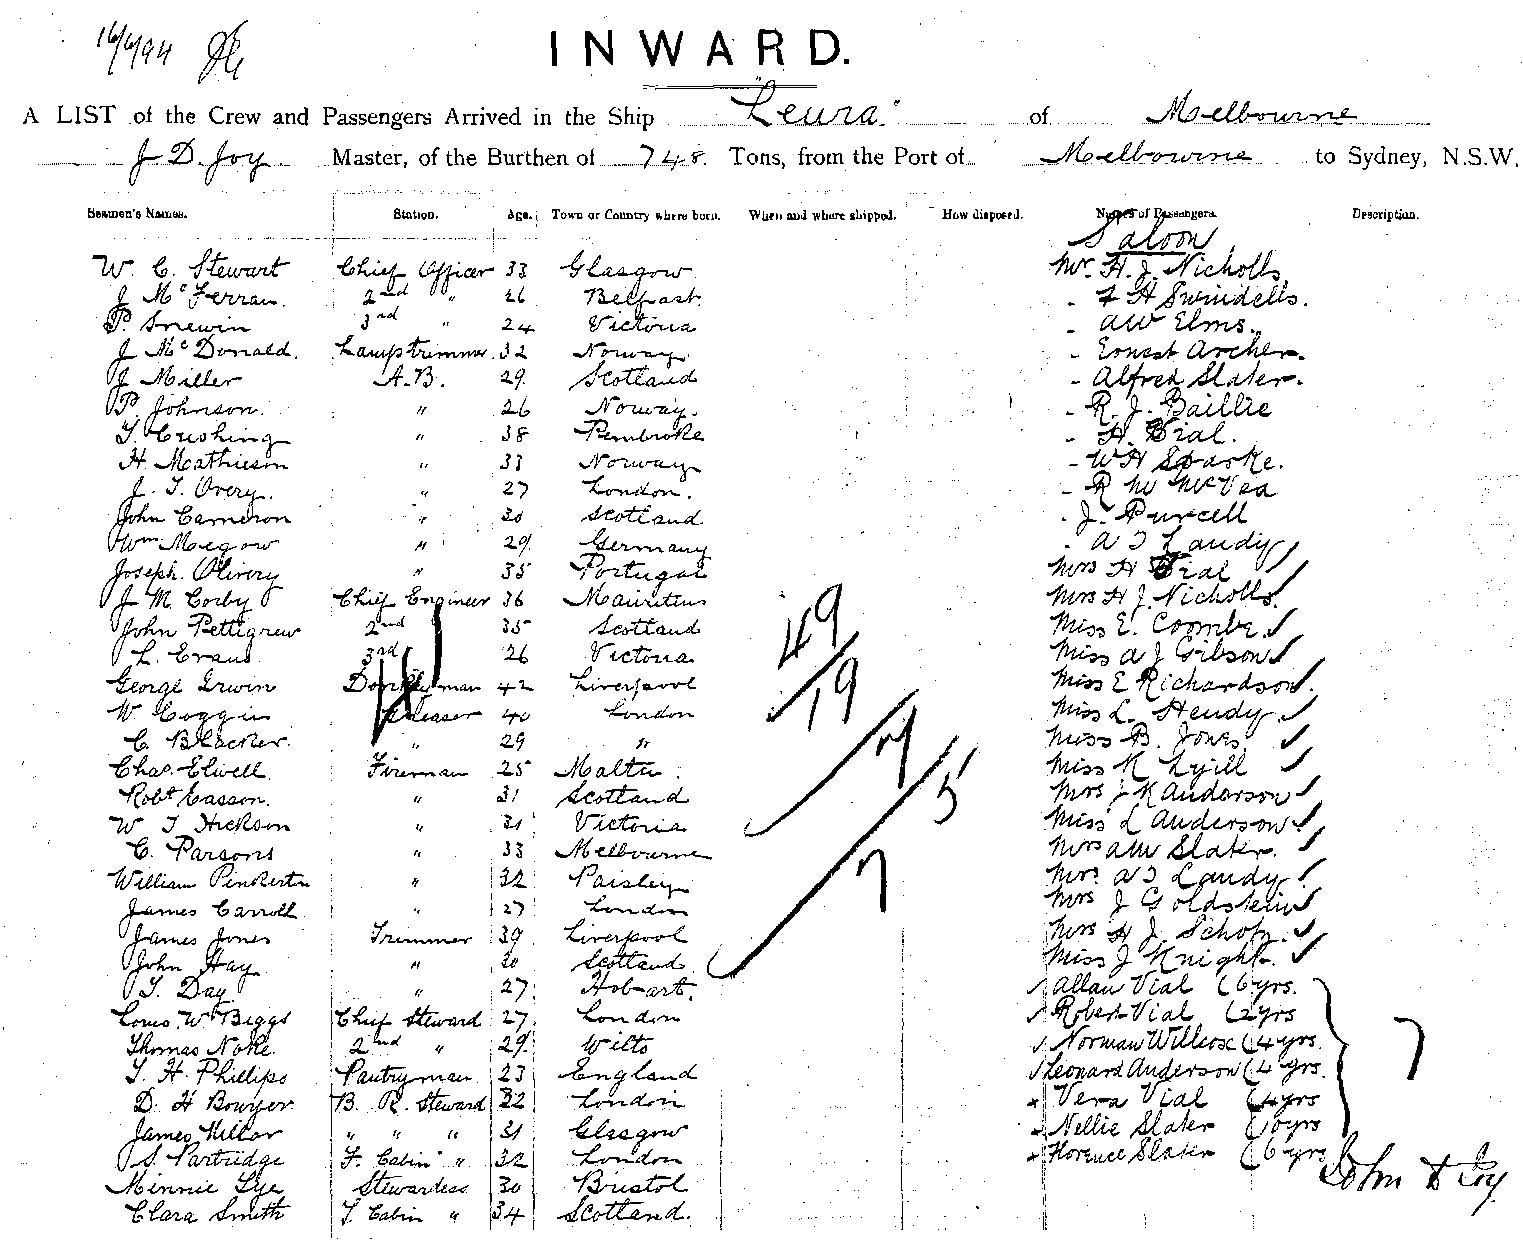 16/6/94
INWARD.
A LIST of the Crew and Passengers Arrived in the Ship "Leura" of Melbourne
J D. Joy Master, of the Burthen of 748. Tons, from the Port of Melbourne to Sydney, N.S.W.
Seamen's Names. Station. Age. Town or Country where born. When and where shipped. How disposed. Names of Passengers. Description.
Saloon
W. C. Stewart Chief Officer 33 Glasgow Mr. H. J. Nicholls
J McFerran. 2nd " 26 Belfast. - F H Swindells.
P. Snewin 3rd " 24 Victoria - AW Elms.
J McDonald. Lamptrimmer 32 Norway. - Ernest Archer.
J Miller A.B. 29. Scotland - Alfred Slater.
P. Johnson. " 26 Norway. - R. J. Baillie
T. Cushing " 38 Pembroke - H. Vial.
H. Mathieson " 33 Norway - WH Sparke.
J. T. Overy. " 27 London. - R McVea
John Cameron " 30 Scotland - J. Purcell
Wm Megow " 29. Germany - A T Landy
Joseph Olivery " 35 Portugal Mrs H Vial
J M Corby Chief Engineer 36 Mauritius Mrs H J. Nicholls.
John Pettigrew 2nd 35 Scotland Miss E. Coombe.
L. Evans 3rd 26 Victoria Miss A J Gibson
George Irwin Donkeyman 42 Liverpool Miss E Richardson.
W Coggin Greaser 40 London Miss L. Hendy
C. Blacker. " 29 " Miss B. Jones
Chas. Elwell Fireman 25 Malta Miss K Lyill
Robt Easson. " 31 Scotland Mrs J K Anderson
W T Hickson " 31 Victoria Miss L Anderson
C. Parsons " 33 Melbourne Mrs AW Slater.
William Pinkerton " 32 Paisley Mrs. A T Landy
James Carroll " 27 London Mrs J Goldstein
James Jones Trimmer 39 Liverpool Mrs H J. Scholz.
John Hay " 30 Scotland Miss J Knight.
T. Day " 27. Hobart. Allan Vial (6yrs.
Louis W Biggs Chief Steward 27. London Robert Vial (2yrs
Thomas Noke. 2nd " 29. Wilts Norman Willcox (4yrs.
T. H. Phillips Pantryman 23 England Leonard Anderson (4 yrs.
D. H Bowyer B. R. Steward 32 London Vera Vial (4yrs
James Millar " " " 31 Glasgow Nellie Slater (10yrs
S. Partridge F. Cabin " 32 London Florence Slater (6 yrs
Minnie Lye Stewardess 30 Bristol
Clara Smith F. Cabin " 34 Scotland.
49
19
7
5
7
7
John D Joy